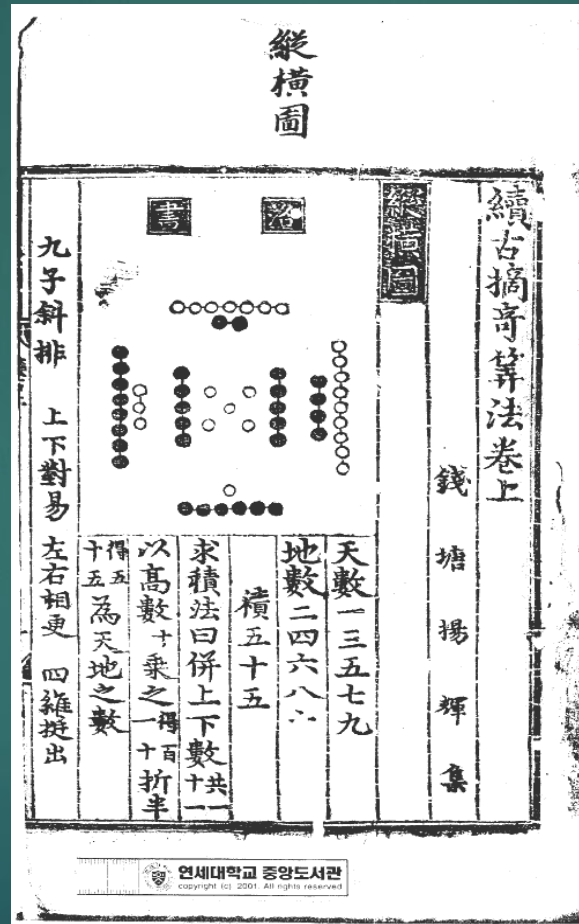 縱橫圖
續古摘奇算法卷上
錢塘揚輝集
縱橫圖
洛書
天數一三五七九
地數二四六八十
積五十五
求積法曰併上下數共一十一
以高數十乘之得百一十折半
得五十五為天地之數
九子斜排 上下對易 左右相更 四維挺出
연세대학교 중앙도서관
copyright (c) 2001. All rights reserved